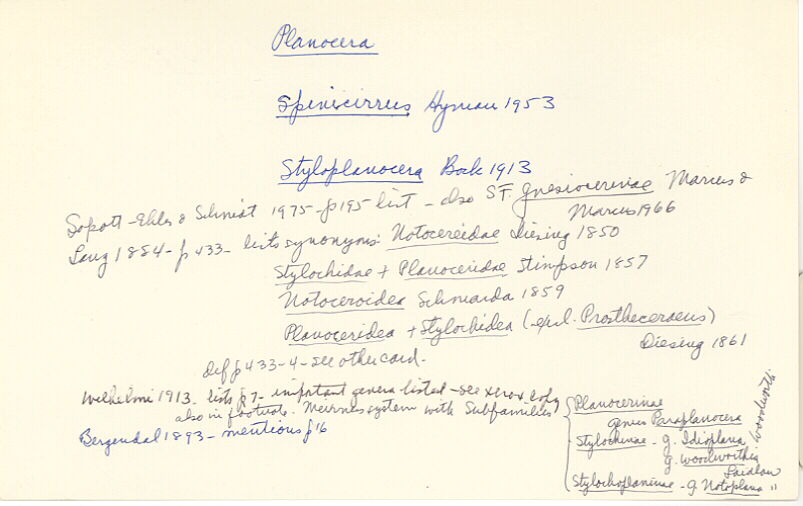 Planocera
Spinicirrus Hyman 1953
Styloplanocera Bock 1913
Sopott-Ehlers & Schmidt 1975-p195 list - also SF. Gnesiocerinae Marcus &
Marcus 1966
Lang 1884-p433- lists synonyms: Notocereidae Diesing 1850
Stylochidae + Planoceridae Stimpson 1857
Notoceroidea Schmarda 1859
Planoceridea + Stylochidea (excl. Prostheceraeus)
Diesing 1861
Def p433-4-see other card.
Wilhelmi 1913- lists p7- important genera listed-see xerox copy
also in footnote. Meixner system with Subfamilies
Bergendal 1893- mentions p16
Planocerinae
genus Paraplanocera
Stylochinae - g. Idioplana Woodworth
g. Woodworthia
Laidlaw
Stylochoplaninae - g. Notoplana "